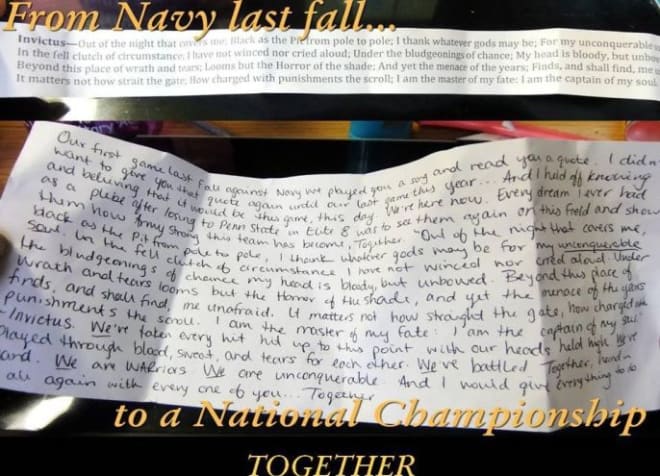 From Navy last fall...
Invictus—Out of the night that covers me; Black as the Pit from pole to pole; I thank whatever gods may be; For my unconquerable
In the fell clutch of circumstance, I have not winced nor cried aloud; Under the bludgeonings of chance; My head is bloody, but unbow
Beyond this place of wrath and tears; Looms but the Horror of the shade; And yet the menace of the years; Finds, and shall find, me
It matters not how strait the gate; How charged with punishments the scroll; I am the master of my fate: I am the captain of my soul.
Our first game last fall against Navy we played you a song and read you a quote. I didn't
want to give you that quote again until our last game this year... And I held off knowing
and believing that it would be this game, this day. We're here now. Every dream I ever had
as a plebe after losing to Penn State in Elite 8 was to see them again on this field and show
them how Army Strong this team has become, Together. "Out of the night that covers me,
black as the Pit from pole to pole, I thank whatever gods may be for my unconquerable
Soul. In the fell clutch of circumstance I have not winced nor cried aloud. Under
the bludgeonings of chance my head is bloody, but unbowed. Beyond this place of
wrath and tears looms but the Horror of the shade, and yet the menace of the years
finds, and shall find, me unafraid. It matters not how straight the gate, how charged with
punishments the scroll. I am the master of my fate: I am the captain of my soul."
- Invictus. We've taken every hit hd up to this point with our heads held high. We've
played through blood, sweat, and tears for each other. We've battled Together, hand in
hand. We are warriors We are unconquerable. And I would give everything to do
it all again with every one of you... Together
to a National Championship
TOGETHER